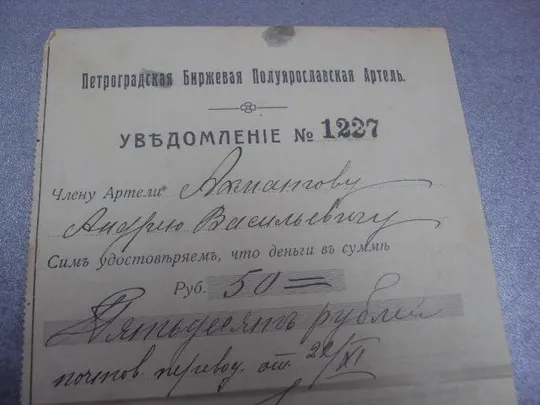 Петроградская Биржевая Полуярославская Артель.
УВѢДОМЛЕНІЕ № 1227
Члену Артели
Андрею Васильевичу
Симъ удостовѣряемъ, что деньги въ суммѣ
Руб. 50=
Пятьдесятъ рублей
почтов. перевод. от. 22/XI